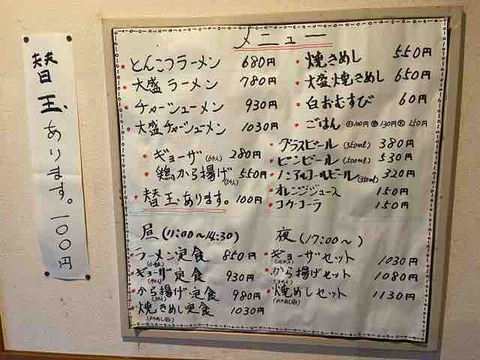 替玉あります。一〇〇円
メニュー
・とんこつラーメン 680円
・大盛ラーメン 780円
・チャーシューメン 930円
・大盛チャーシューメン 1030円
・ギョーザ 280円
・鶏から揚げ 550円
・替玉あります。100円
・焼きめし 550円
・大盛焼きめし 650円
・白おむすび 60円
・ごはん 小100円 中130円 大150円
・グラスビール(350ml) 380円
・ビンビール(500ml) 530円
・ノンアルコールビール(350ml) 320円
・オレンジジュース 150円
・コカ・コーラ 150円
昼(11:00〜14:30)
・ラーメン定食 850円
・ギョーザ定食 930円
・から揚げ定食 980円
・焼きめし定食 1030円
夜(17:00〜)
・ギョーザセット 1030円
・から揚げセット 1080円
・焼めしセット 1130円